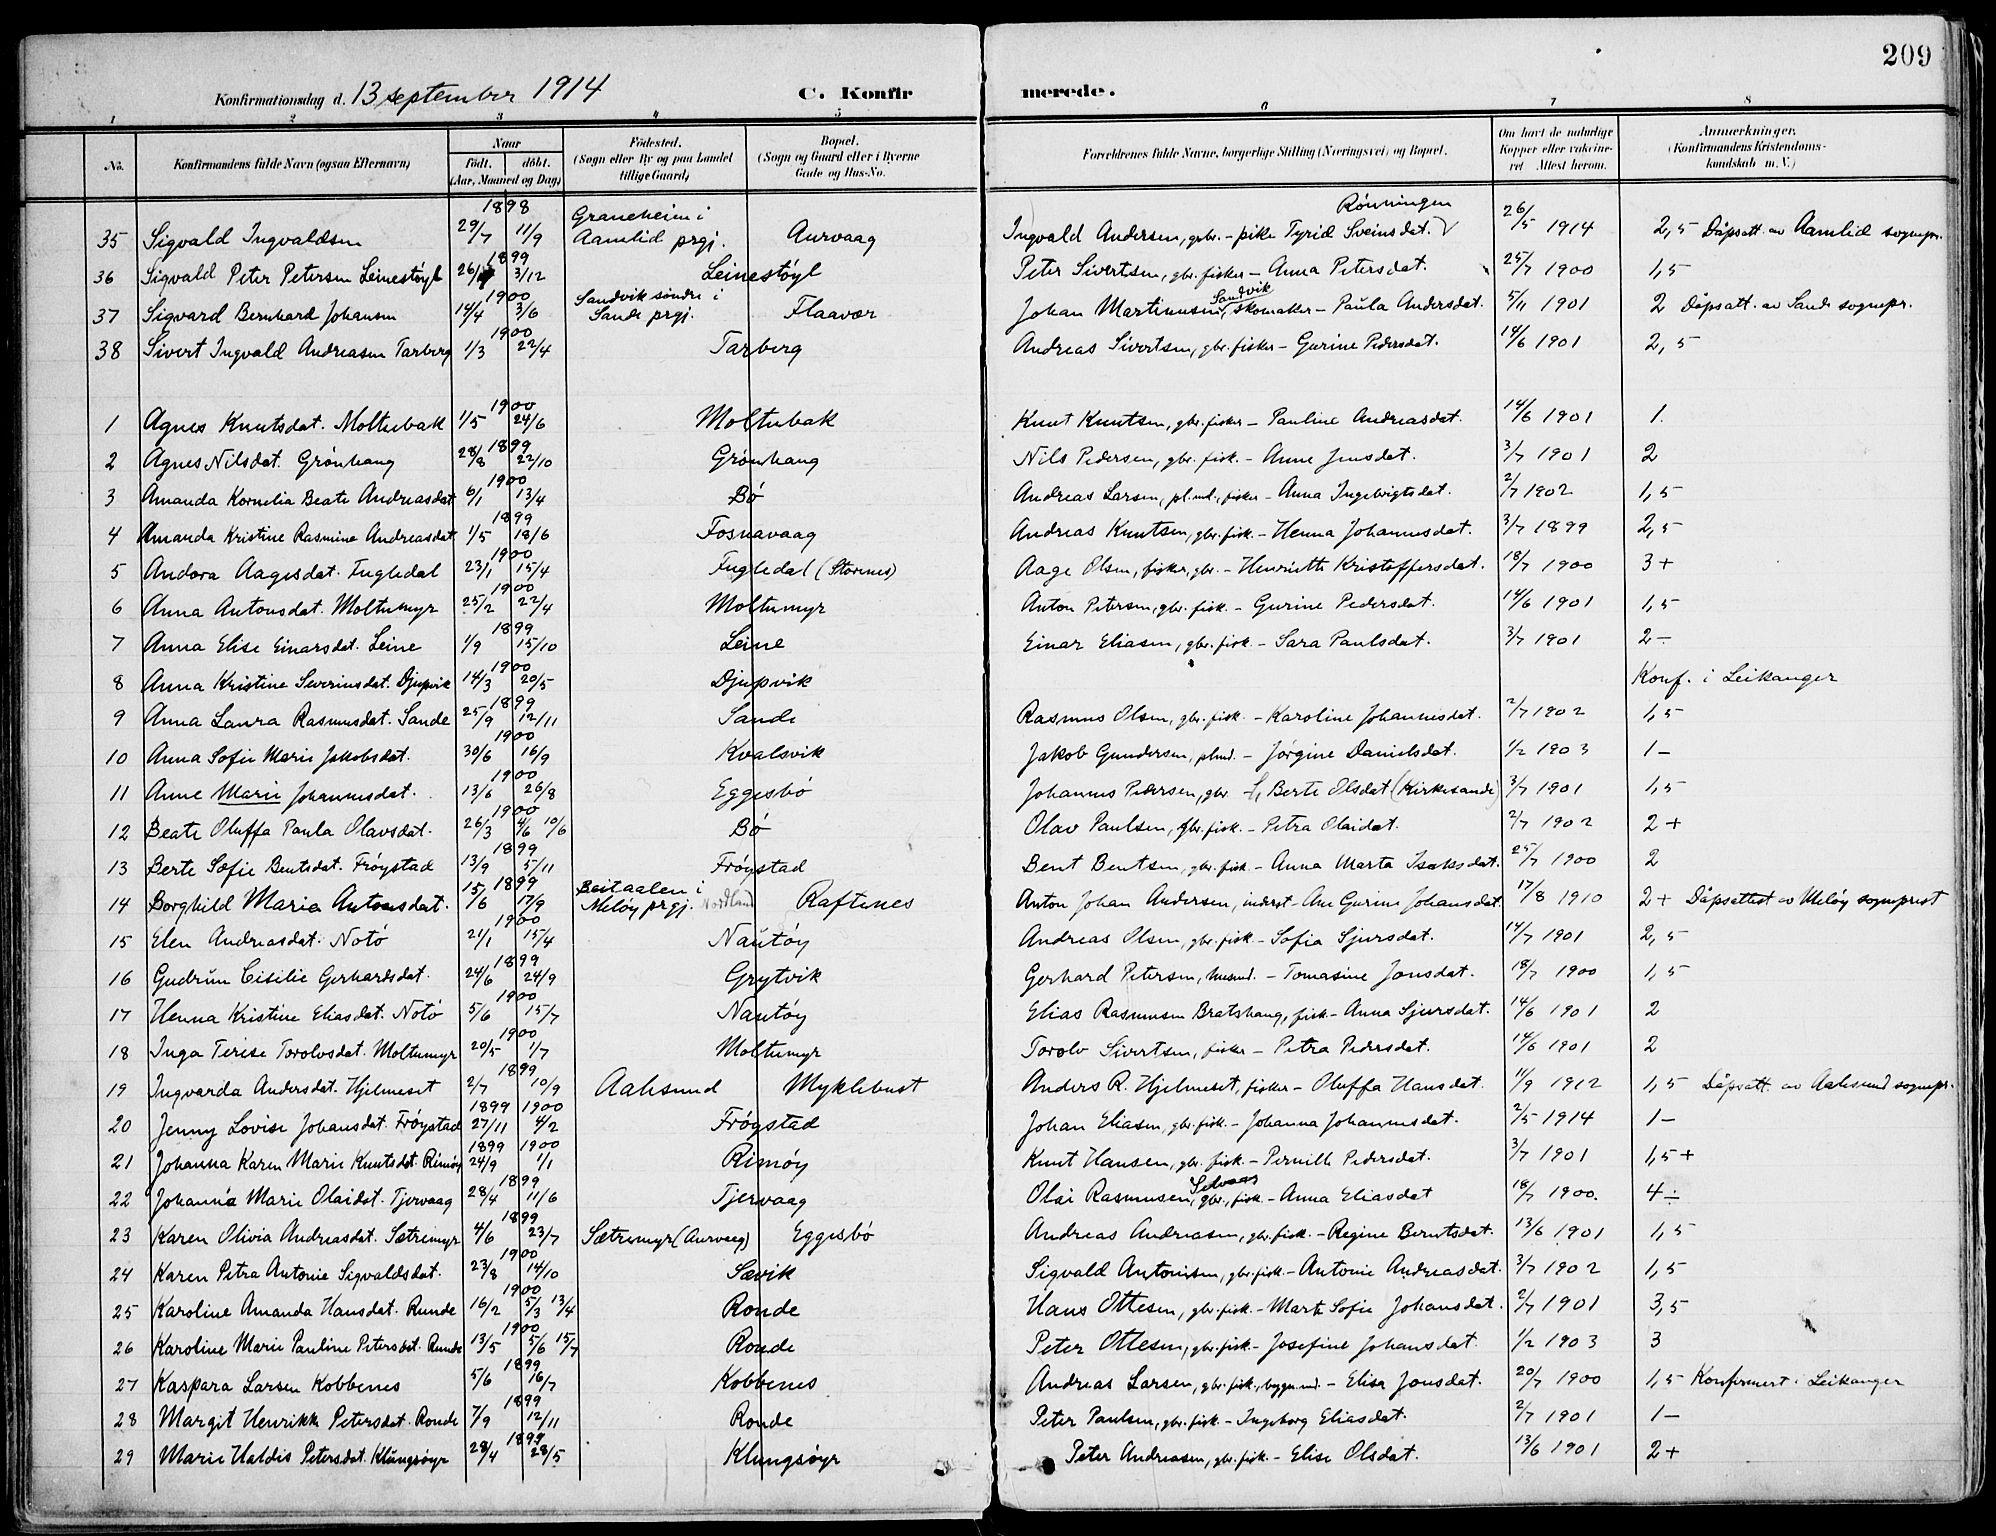 209
Konfirmationsdag d. 13 september 1914 C. Konfirmerede.
1 2 3 4 5 6 7 8
No. Konfirmandens fulde Navn (ogsaa Efternavn) Naar født. døbt. (Aar, Maaned og Dag) Fødested. (Sogn eller By og paa Landet tillige Gaard) Bopæl. (Sogn og Gaard eller i Byerne Gade og Hus-No. Forældrenes fulde Navne, borgerlige Stilling (Næringsvei) og Bopæl. Om havt de naturlige Kopper eller vaccineret Attest herom. Anmærkninger. (Konfirmandens Kristendomskundskab m. V.)
1898 Graneheim i Rönningen
35 Sigvald Ingvaldsen 29/7 11/9 Aamlid prgj. Aurvaag Ingvald Andersen, gbr. - pike Tyrid Sveinsdat. 26/5 1914 2,5 Dåpsatt. av Aamlid sognepr.
1899
36 Sigvald Peter Petersen Leinestöyl 26/ 3/12 Leinestöyl Peter Sivertsen, gbr. fisker - Anna Petersdat. 25/7 1900 1,5
1900 Sandvik söndre i Sandvik
37 Sigvard Bernhard Johansen 14/4 3/6 Sande prgj. Flaavær Johan Martinusen, skomaker - Paula Andersdat. 5/11 1901 2 Dåpsatt. av Sande sognepr.
1900
38 Sivert Ingvald Andreasen Tarberg 1/3 22/4 Tarberg Andreas Sivertsen, gbr. fisker - Gurine Pedersdat. 14/6 1901 2,5
1900
1 Agnes Knutsdat. Moltubak 1/5 24/6 Moltubak Knut Knutsen, gbr. fisker - Pauline Andreasdat. 14/6 1901 1.
1899
2 Agnes Nilsdat. Grönhaug 28/8 22/10 Grönhaug Nils Pedersen, gbr. fisk. - Anne Jensdat. 3/7 1901 2
1900
3 Amanda Kornelia Beate Andreasdat 6/1 13/4 Bö Andreas Larsen, pl.md., fisker - Anna Ingebrigtsdat. 2/7 1902 1,5
1899
4 Amanda Kristine Rasmine Andreasdat. 1/5 18/6 Fosnavaag Andreas Knutsen, gbr. fisk. - Henna Johannesdat. 3/7 1899 2,5
1900
5 Andora Aagesdat. Fugledal 23/1 15/4 Fugledal (Storenes) Aage Olsen, fisker, gbr. - Henriette Kristoffersdat. 18/7 1900 3+
1900
6 Anna Antonsdat. Moltumyr 25/2 22/4 Moltumyr Anton Petersen, gbr. fisk. - Gurine Pedersdat. 14/6 1901 1,5
1899
7 Anna Elise Einarsdat. Leine 1/9 15/10 Leine Einar Eliasen, gbr. fisk. - Sara Paulsdat. 3/7 1901 2-
1900
8 Anna Kristine Severinsdat. Djupvik 14/3 20/5 Djupvik Konf. i Leikanger
1899
9 Anna Laura Rasmusdat. Sande 25/9 12/11 Sande Rasmus Olsen, gbr. fisk. - Karoline Johannesdat. 2/7 1902 1,5
1900
10 Anna Sofie Marie Jakobsdat. 30/6 16/9 Kvalsvik Jakob Gundersen, plmd. - Jörgine Danielsdat. 1/2 1903 1-
1900
11 Anne Marie Johannesdat. 13/6 26/8 Eggesbö Johannes Pedersen, gbr. - f. Berte Olsdat (Kirkesande) 3/7 1901 1,5
1900
12 Beate Oluffa Paula Olavsdat. 26/3 4/6 10/6 Bö Olav Paulsen, gbr. fisk. - Petra Olaidat. 2/7 1902 2+
1899
13 Berte Sofie Bentsdat. Fröystad 13/9 5/11 Fröystad Bent Bentsen, gbr. fisk. - Anna Marta Isaksdat. 25/7 1900 2
1899 Beitaalen i
14 Borghild Maria Antonsdat. 15/6 17/9 Melöy prgj. Nordland Raftenes Anton Johan Andersen, inderst - Ane Gurine Johansdat. 17/8 1910 2+ Dåpsattest av Melöy sogneprest
1900
15 Elen Andreasdat. Notö 21/1 15/4 Nautöy Andreas Olsen, gbr. fisk - Sofia Sjursdat. 14/7 1901 2,5
1899
16 Gudrun Cisilie Gerhardsdat. 24/6 24/9 Grytvik Gerhard Petersen, husmd. - Tomasine Jonsdat. 18/7 1900 1,5
1900
17 Henna Kristine Eliasdat. Notö 5/6 15/7 Nautöy Elias Rasmusen Bratshaug, fisk - Anna Sjursdat. 14/6 1901 2
1900
18 Inga Terese Torolvsdat. Moltumyr 20/5 1/7 Moltumyr Torolv Sivertsen, fisker - Petra Pedersdat. 14/6 1901 2
1899
19 Ingvarda Andersdat. Hjelmeset 2/7 10/9 Aalesund Myklebust Anders R. Hjelmeset, fisker - Oluffa Hansdat. 11/9 1912 1,5 Dåpsatt. av Aalesund sognepr.
1899 1900
20 Jenny Lovise Johansdat. Fröystad 27/11 4/2 Fröystad Johan Eliasen, gbr. fisk. - Johanna Johannesdat. 2/5 1914 1-
1899 1900
21 Johanna Karen Marie Knutsdat. Rimöy 24/9 1/1 Rimöy Knut Hansen, gbr. fisk. - Pernille Pedersdat. 3/7 1901 1,5+
1899
22 Johanna Marie Olaidat. Tjervaag 28/4 11/6 Tjervaag Olai Rasmusen, gbr. fisk. - Anna Eliasdat 18/7 1900. 4-
1899
23 Karen Olivia Andreasdat. Sætremyr 4/6 23/7 Sætremyr (Aurvaag) Eggesbö Andreas Andreasen, gbr. fisk. - Regine Berntsdat. 13/6 1901 1,5
1900
24 Karen Petra Antonie Sigvaldsdat. 23/8 14/10 Sævik Sigvald Antonisen, gbr. fisk. - Antonie Andreasdat. 3/7 1902 1,5
1900
25 Karoline Amanda Hansdat. Runde 16/2 5/3 13/4 Ronde Hans Ottesen, gbr. fisk. - Marte Sofie Johansdat. 2/7 1901 3,5
1900
26 Karoline Marie Pauline Petersdat. Runde 13/5 5/6 15/7 Ronde Peter Ottesen, gbr. fisk. - Josefine Johansdat. 1/2 1903 3
1899
27 Kaspara Larsen Kobbenes 5/6 16/7 Kobbenes Andreas Larsen, gbr. fisk., byggm. - Elisa Jonsdat. 20/7 1900 1,5 Konfirmert i Leikanger
1899
28 Margit Henrikke Petersdat. Ronde 7/9 12/11 Ronde Peter Paulsen, gbr. fisk - Ingeborg Eliasdat. 2/7 1901 1-
1899
29 Marie Haldis Petersdat. Klungsöyr 28/4 28/5 Klungsöyr Peter Andreasen, gbr. fisk. - Elise Olsdat. 13/6 1901 2+